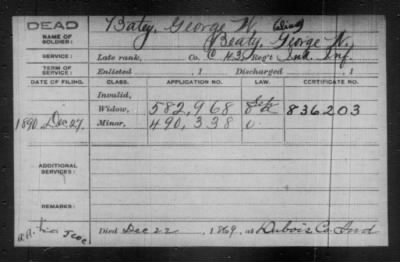 DEAD
NAME OF SOLDIER: Baty, George W. (alias)
Beaty, George W.
SERVICE: Late rank, Co. C 143 Reg't Ind. Inf.
TERM OF SERVICE: Enlisted , 1 Discharged , 1
DATE OF FILING. CLASS. APPLICATION NO. LAW. CERTIFICATE NO.
Invalid,
Widow, 582,968 836203
1890 Dec. 27. Minor, 490,338
ADDITIONAL SERVICES:
REMARKS:
Died Dec 22, 1869, at Dubois Co Ind